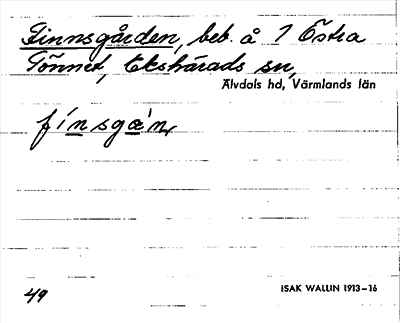 Finnsgården, beb. å 1 Östra
Tönnet, Ekshärads sn,
Älvdals hd, Värmlands län
fínsgæ̀n,
49
ISAK WALLIN 1913–16